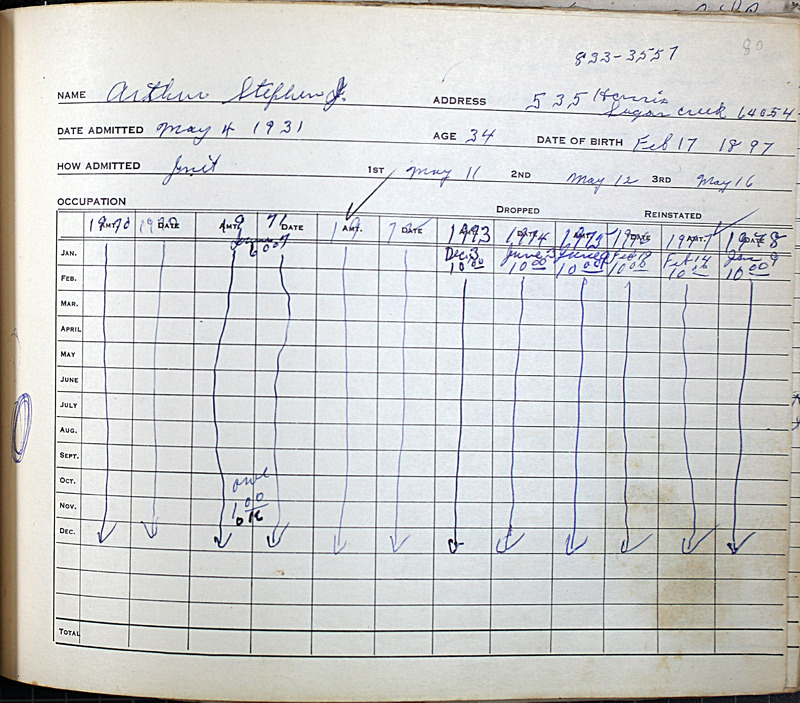 80
833-3557
NAME Arthur Stephen Jr. ADDRESS 535 Harris
Sugar Creek 64054
DATE ADMITTED May 4 1931 AGE 34 DATE OF BIRTH Feb 17 1897
HOW ADMITTED Init 1ST May 11 2ND May 12 3RD May 16
OCCUPATION DROPPED REINSTATED
1970 AMT. DATE AMT. 71 DATE 19 AMT. 72 DATE 1973 AMT. 1974 DATE 1975 AMT. DATE 1977 AMT. 1978 DATE
JAN. 6.00 Dec. 3 10.00 June 3 10.00 June 9 10.00 Feb 18 10.00 Feb 14 10.00 Jan 9 10.00
FEB.
MAR.
APRIL
MAY
JUNE
JULY
AUG.
SEPT.
OCT. owe
NOV. 1.00
OK
DEC.
TOTAL